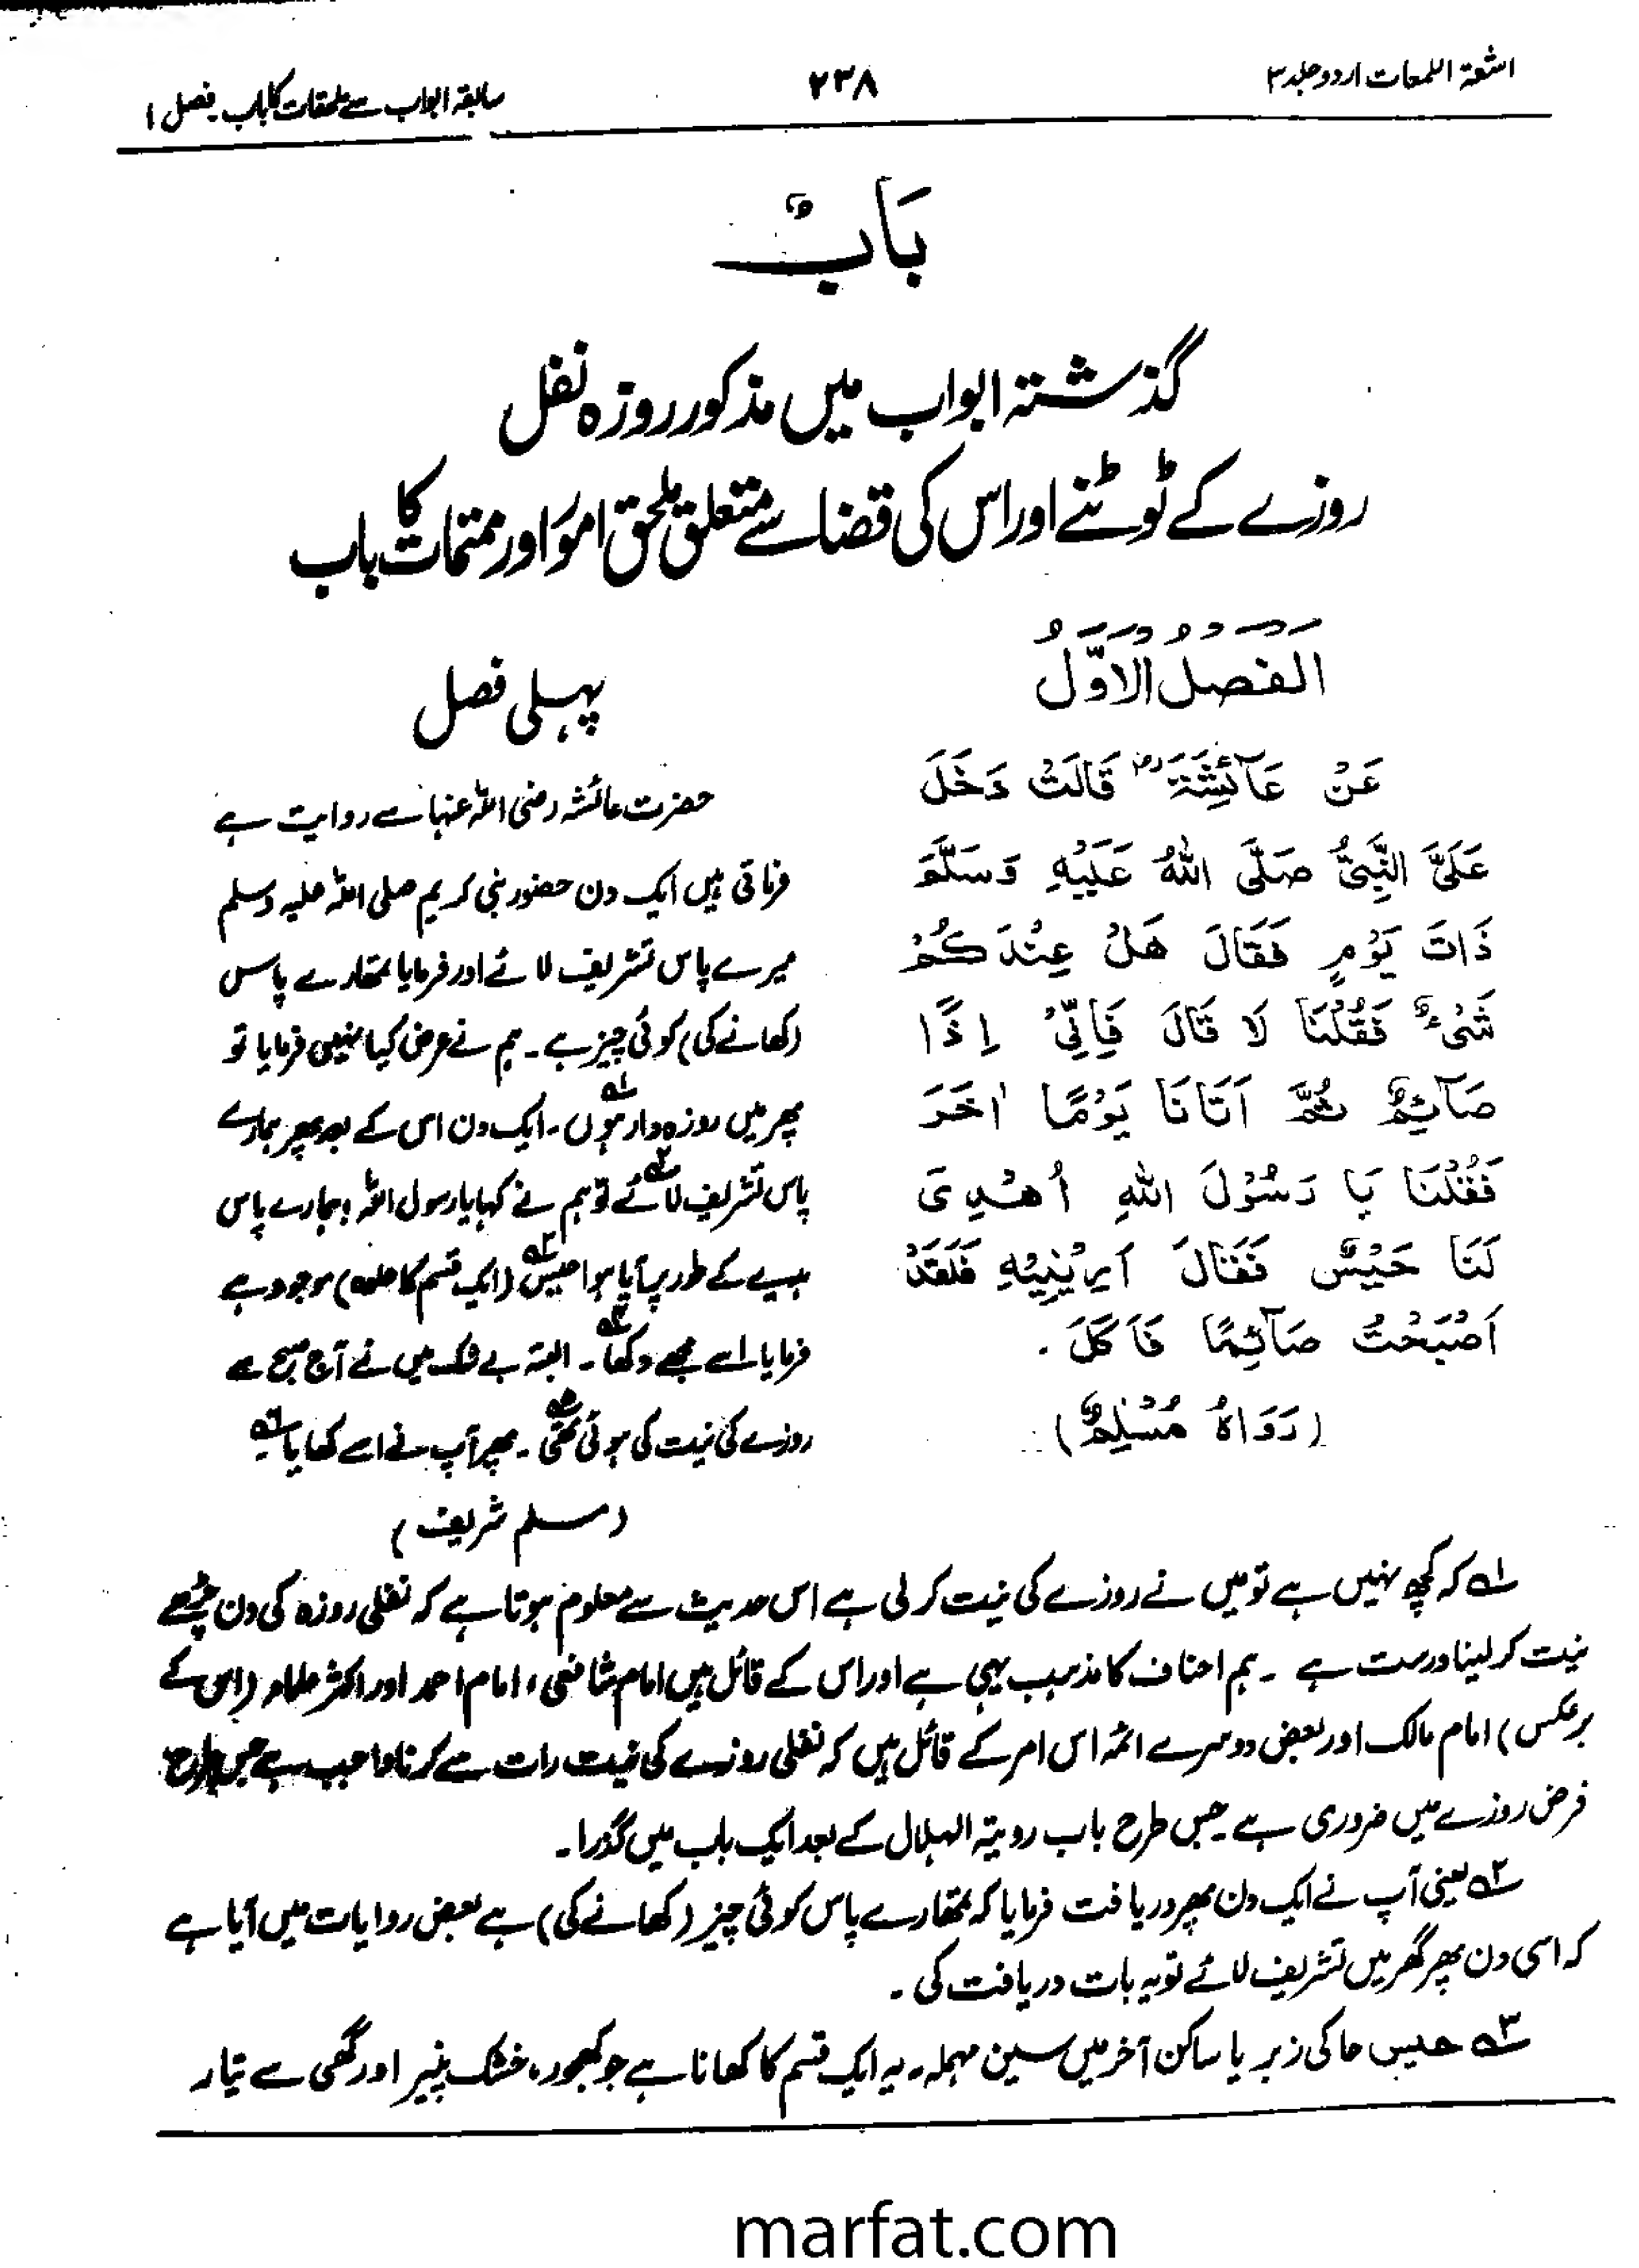 اشعۃ اللمعات اردو جلد ۳
۲۳۸
سابقہ ابواب سے ملحقات کا باب۔ فصل ۱
بَابٌ
گذشتہ ابواب میں مذکور روزہ نفل
روزے کے ٹوٹنے اور اس کی قضا سے متعلق ملحق امور اور متممات کا باب
اَلْفَصْلُ الْاَوَّلُ
عَنْ عَآئِشَةَ رض قَالَتْ دَخَلَ
عَلَىَّ النَّبِىُّ صَلَّى اللهُ عَلَيْهِ وَسَلَّمَ
ذَاتَ يَوْمٍ فَقَالَ هَلْ عِنْدَكُمْ
شَىْءٌ فَقُلْنَا لَا قَالَ فَاِنِّىْ اِذًا
صَآئِمٌ ثُمَّ اَتَانَا يَوْمًا اٰخَرَ
فَقُلْنَا يَا رَسُوْلَ اللهِ اُهْدِىَ
لَنَا حَيْسٌ فَقَالَ اَرِيْنِيْهِ فَلَقَدْ
اَصْبَحْتُ صَآئِمًا فَاَكَلَ۔
(رَوَاهُ مُسْلِمٌ)
پہلی فصل
حضرت عائشہ رضی اللہ عنہا سے روایت ہے
فرماتی ہیں ایک دن حضور نبی کریم صلی اللہ علیہ وسلم
میرے پاس تشریف لائے اور فرمایا تمھارے پاس
(کھانے کی) کوئی چیز ہے۔ ہم نے عرض کیا نہیں فرمایا تو
پھر میں روزہ دار ہوں۱؎۔ ایک دن اس کے بعد پھر ہمارے
پاس تشریف لائے۲؎ تو ہم نے کہا یا رسول اللہ! ہمارے پاس
ہدیے کے طور پر آیا ہوا حیس۳؎ (ایک قسم کا حلوہ) موجود ہے
فرمایا اسے مجھے دکھا۴؎۔ البتہ بے شک میں نے آج صبح سے
روزے کی نیت کی ہوئی تھی۵؎۔ پھر آپ نے اسے کھایا۶؎۔
(مسلم شریف)
۱؎ کہ کچھ نہیں ہے تو میں نے روزے کی نیت کر لی ہے اس حدیث سے معلوم ہوتا ہے کہ نفلی روزہ کی دن چڑھے
نیت کر لینا درست ہے ۔ ہم احناف کا مذہب یہی ہے اور اس کے قائل ہیں امام شافعی، امام احمد اور اکثر علماء (اس کے
برعکس) امام مالک اور بعض دوسرے ائمہ اس امر کے قائل ہیں کہ نفلی روزے کی نیت رات سے کرنا واجب ہے جس طرح
فرض روزے میں ضروری ہے جس طرح باب رویۃ الہلال کے بعد ایک باب میں گذرا۔
۲؎ یعنی آپ نے ایک دن پھر دریافت فرمایا کہ تمھارے پاس کوئی چیز (کھانے کی) ہے بعض روایات میں آیا ہے
کہ اسی دن پھر گھر میں تشریف لائے تو یہ بات دریافت کی ۔
۳؎ حیس حا کی زبر یا ساکن آخر میں سین مہملہ۔ یہ ایک قسم کا کھانا ہے جو کھجور، خشک پنیر اور گھی سے تیار
marfat.com